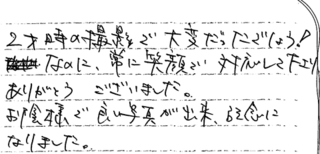 2才時の撮影で大変だったでしょう!
なのに、常に笑顔で対応して下さり
ありがとうございました。
お陰様で良い写真が出来、記念に
なりました。